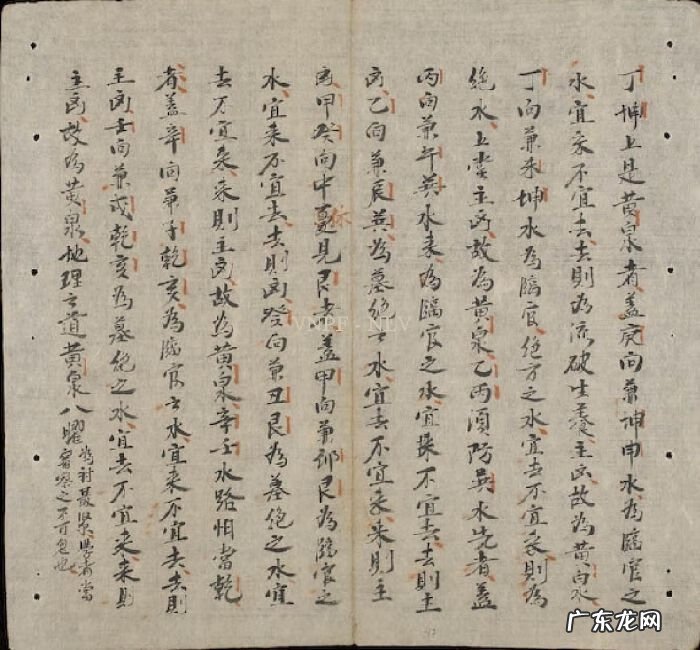 丁坤上是黄泉者盖庚向兼坤申水為臨官之
水宜来不宜去去則為流破生養主凶故為黄泉水
丁向兼未坤水為臨官絶方之水宜去不宜来則為
絶水上堂主凶故為黄泉乙丙須防巽水先者盖
丙向兼午巽水来為臨官之水宜来不宜去去則主
凶乙向兼辰巽為墓絶之水宜去不宜来来則主
凶甲癸向中憂見艮者盖甲向兼卯艮為臨官之
水宜来不宜去去則凶癸向兼丑艮為墓絶之水宜
去不宜来来則主凶故為黄泉辛壬水路怕當乾
者盖辛向兼乾亥為臨官之水宜来不宜去去則
主凶壬向兼戌乾亥為墓絶之水宜去不宜来来則
主凶故為黄泉地理之道黄泉八曜
為對最緊學者當
審察之不可忽也
VNPF - NLV
广东龙网